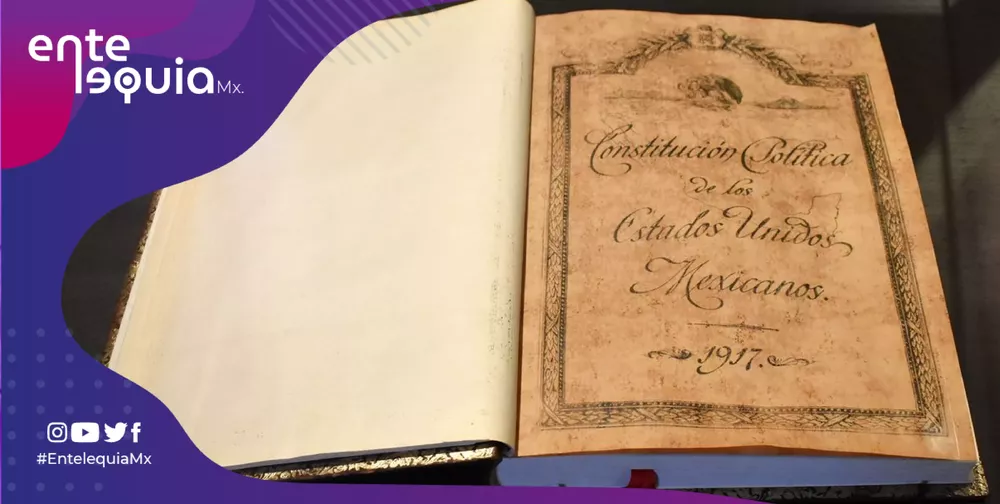 ente
lequia Mx.
Constitución Política
de los
Estados Unidos
Mexicanos.
1917.
#EntelequiaMx